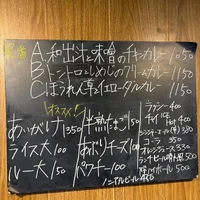 A.和出汁と味噌のチキンカレー 1050
B.トントロとしめじのクリームカレー 1150
C.ほうれん草イエローダルカレー 1150
オススメ!
あいがけ 1350
ライス大 100
ルー大 150
半熟たまご 150
あぶりチーズ 100
パクチー 100
ラッシー 400
チャイ ICE HOT 400
ジンジャーエール(辛) 380
コーラ 350
オレンジジュース 330
ランチビール 500
ハイボール 500
ノンアルビール